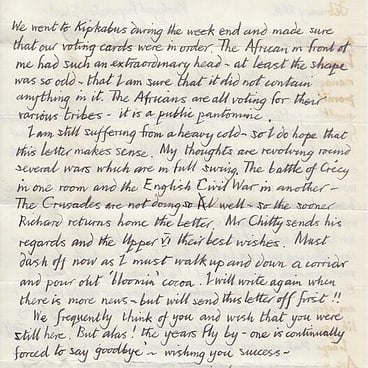 We went to Kipkabus during the week end and made sure
that our voting cards were in order. The African in front of
me had such an extraordinary head ~ at least the shape
was so odd - that I am sure that it did not contain
anything in it. The Africans are all voting for their
various tribes - it is a public pantomine.
I am still suffering from a heavy cold - so I do hope that
this letter makes sense. My thoughts are revolving round
several wars which are in full swing. The battle of Crécy
in one room and the English Civil War in another -
The Crusades are not doing so well - so the sooner
Richard returns home the better. Mr Chitty sends his
regards and the Upper VI their best wishes. Must
dash off now as I must walk up and down a corridor
and pour out 'bloomin' cocoa. I will write again when
there is more news - but will send this letter off first!!
We frequently think of you and wish that you were
still here. But alas! the years fly by - one is continually
forced to say 'goodbye' ~ wishing you success -